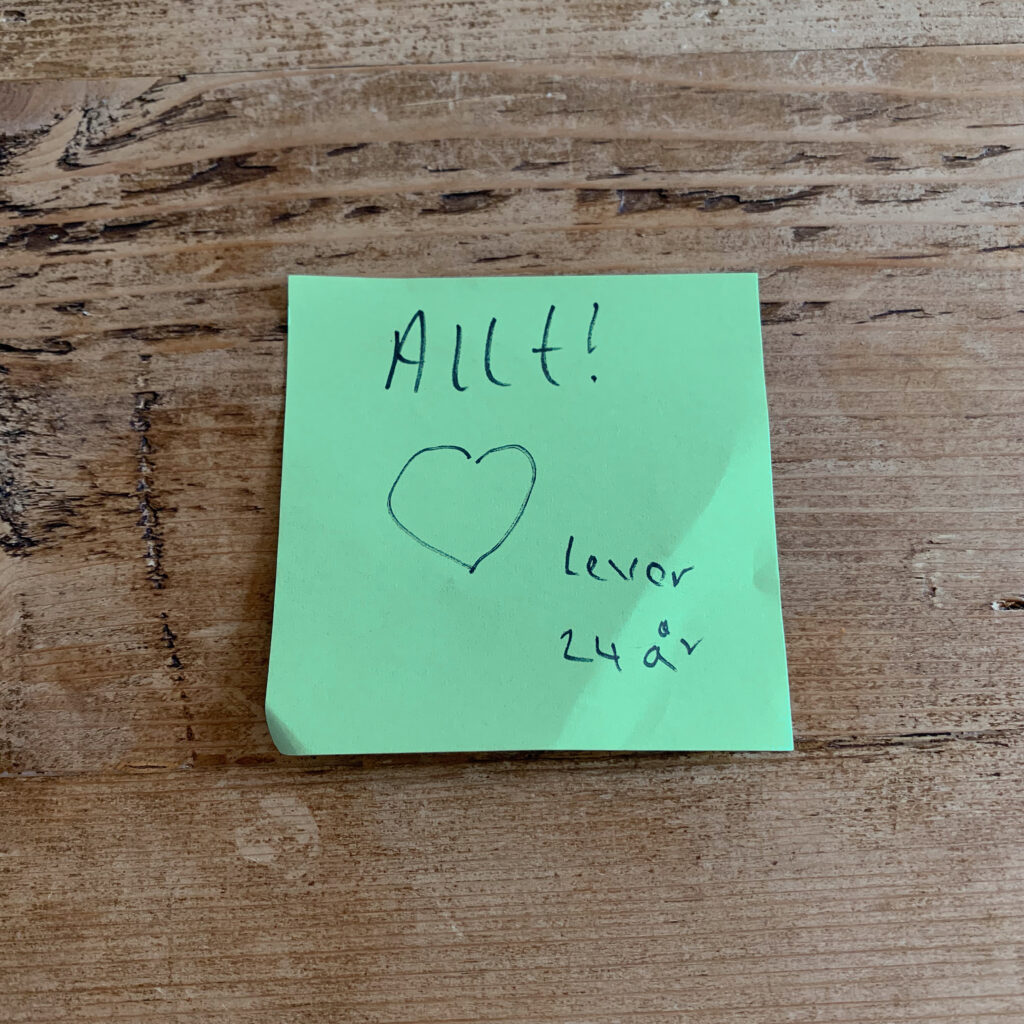 Allt!
Levor
24 år